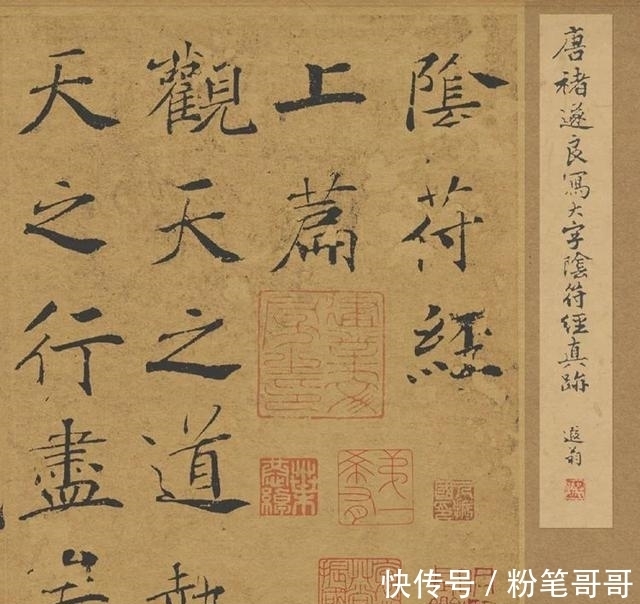 唐褚遂良寫大字陰符經真跡
遐翁
陰符經
上篇
觀天之道執
天之行盡
建業文房之印
快传号 / 粉笔哥哥